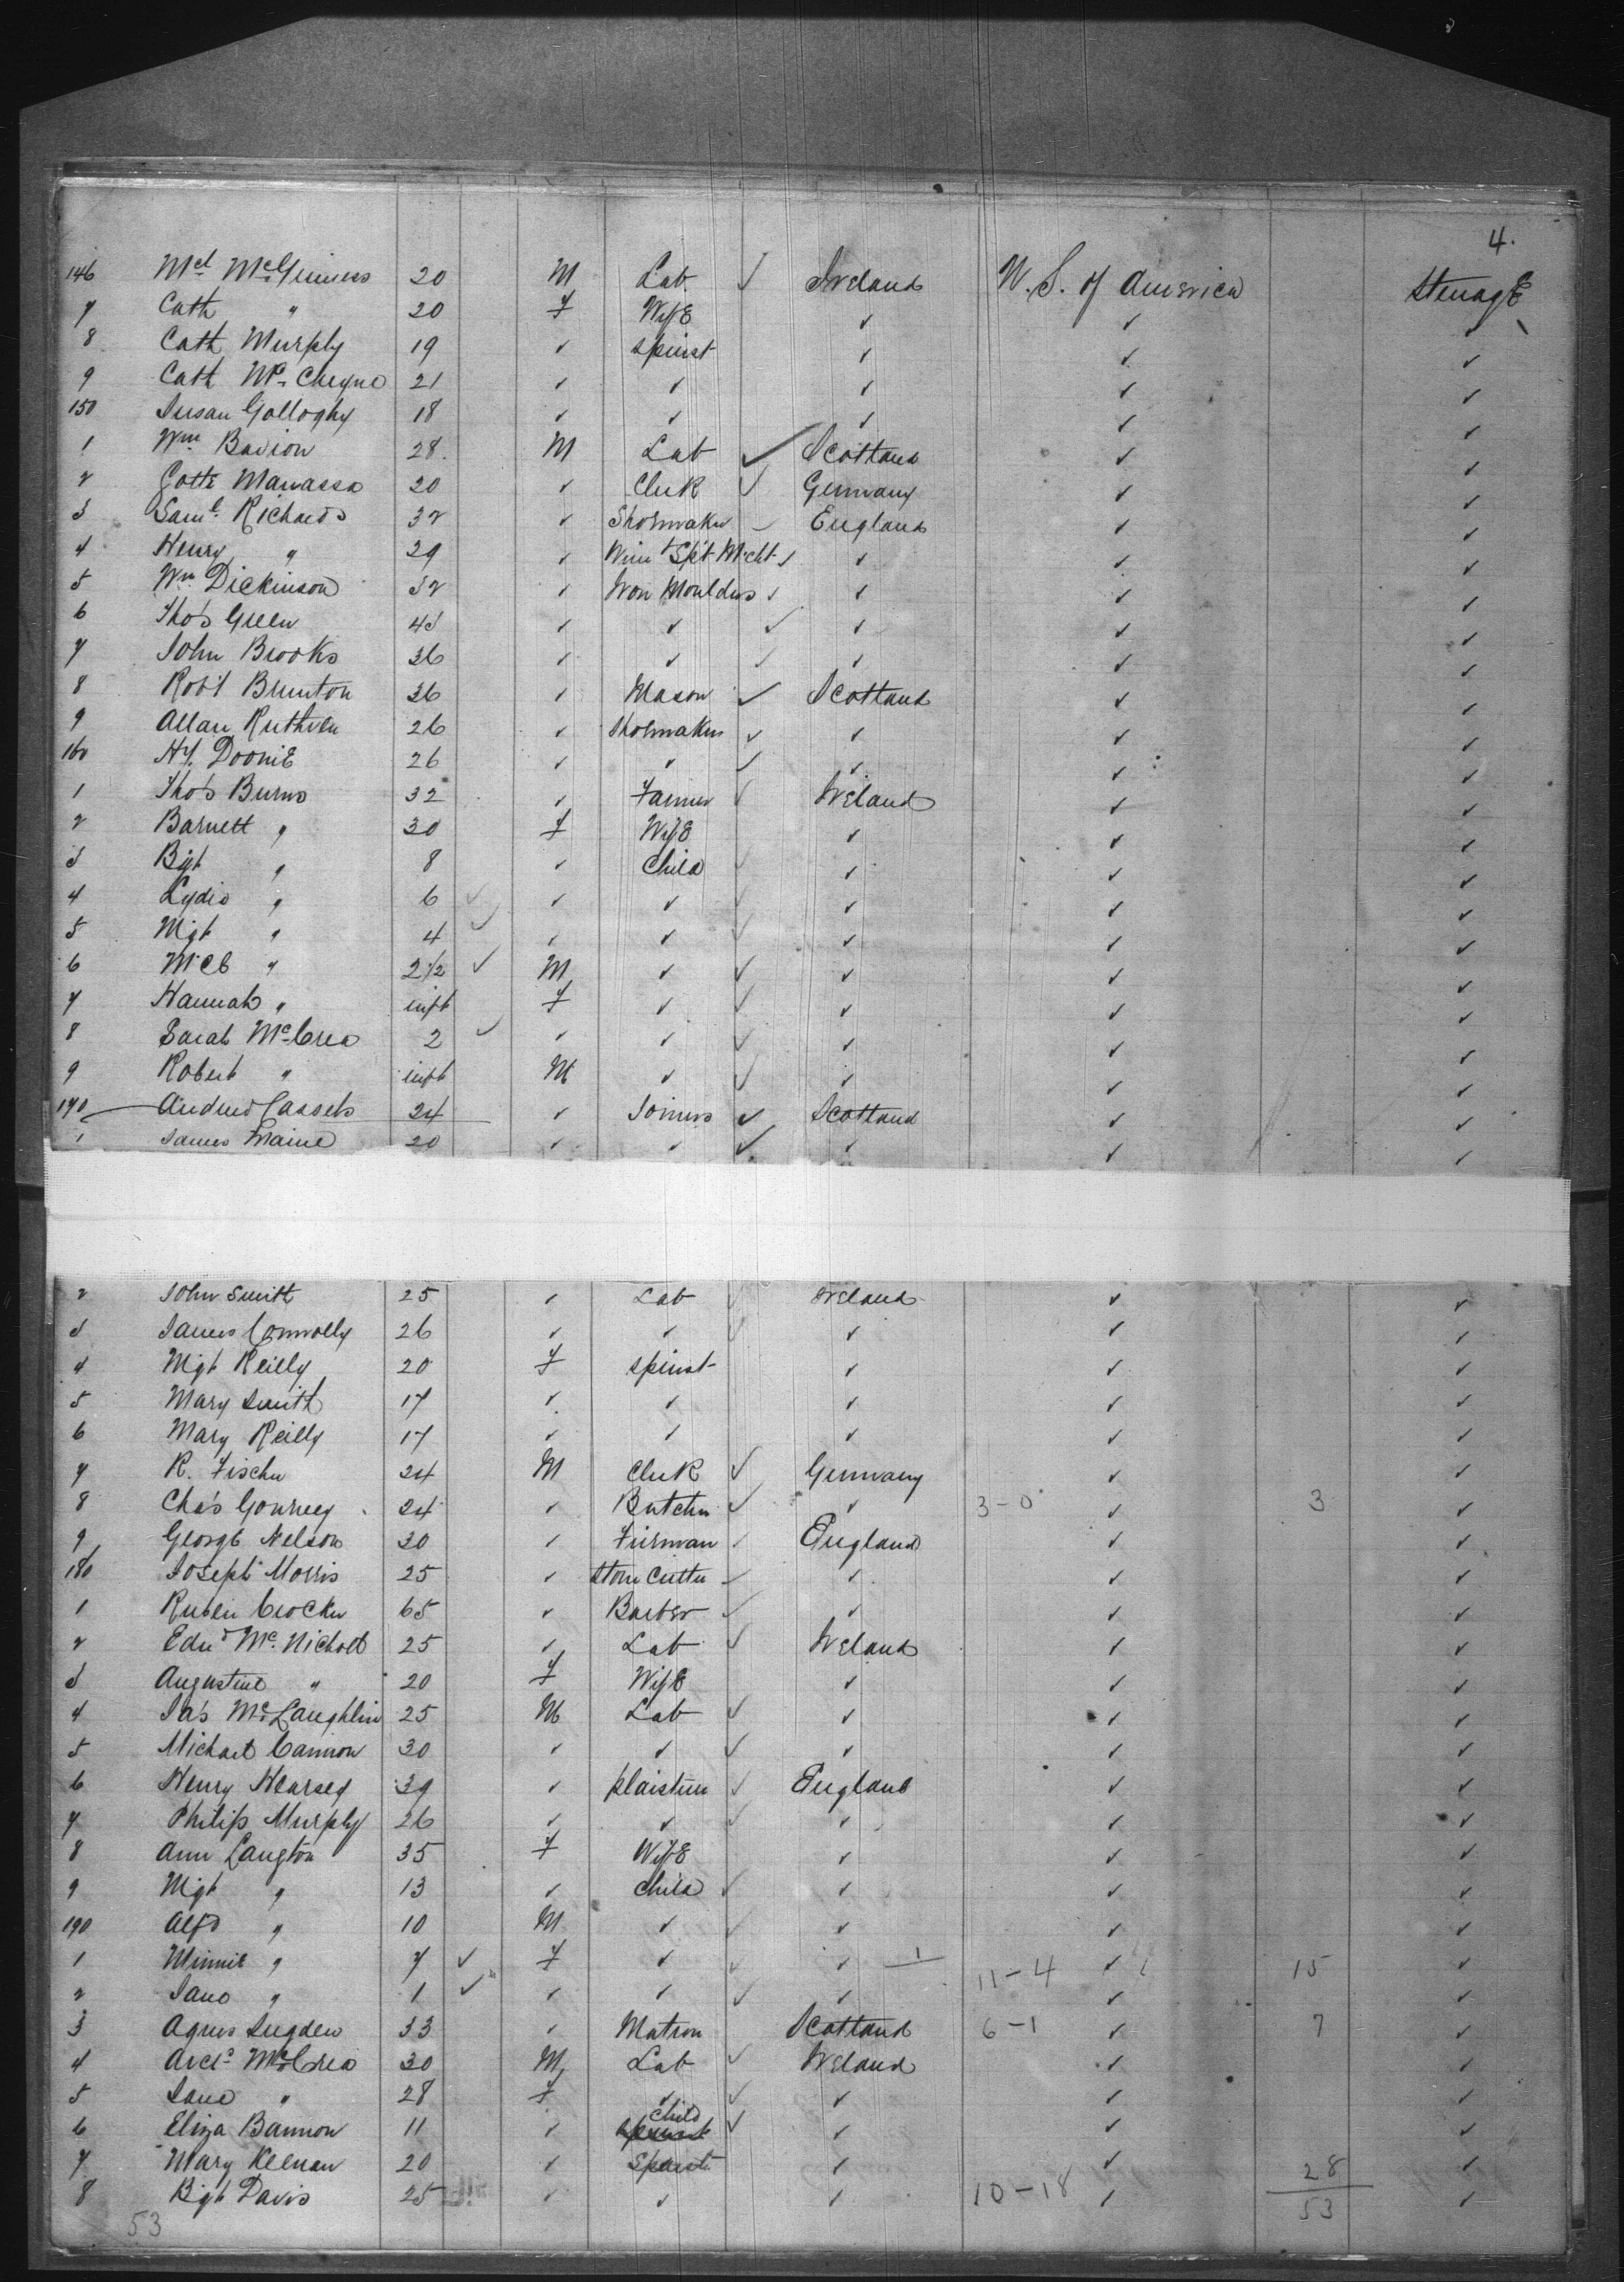 4.
146 Mcl McGuiness 20 M Lab ✓ Ireland U. S. of America Steerage
7 Cath " 20 F Wife ✓ ✓ ✓
8 Cath Murphy 19 ✓ Spinst ✓ ✓ ✓
9 Cath Mc Cheyne 21 ✓ ✓ ✓ ✓ ✓
150 Susan Golloghy 18 ✓ ✓ ✓ ✓ ✓
1 Wm 28. M Lab ✓ Scotland ✓ ✓
2 Manassa 20 ✓ Clerk ✓ Germany ✓ ✓
3 Saml Richards 32 ✓ Shoemaker – England ✓ ✓
4 Henry " 29 ✓ Wine & Spt Mcht ✓ ✓ ✓ ✓
5 Wm Dickinson 32 ✓ Iron Moulders ✓ ✓ ✓ ✓
6 Thos Green 43 ✓ ✓ ✓ ✓ ✓ ✓
7 John Brooks 36 ✓ ✓ ✓ ✓ ✓ ✓
8 Robt Brunton 36 ✓ Mason ✓ Scotland ✓ ✓
9 Allan Ruthven 26 ✓ Shoemaker ✓ ✓ ✓ ✓
160 Hy. Doonie 26 ✓ ✓ ✓ ✓ ✓ ✓
1 Thos Burns 32 ✓ Farmer ✓ Ireland ✓ ✓
2 Barnett " 30 F Wife ✓ ✓ ✓
3 Bgt " 8 ✓ Child ✓ ✓ ✓ ✓
4 Lydia " 6 ✓ ✓ ✓ ✓ ✓ ✓ ✓
5 Mgt " 4 ✓ ✓ ✓ ✓ ✓ ✓ ✓
6 Mcl " 2 1/2 ✓ M ✓ ✓ ✓ ✓ ✓
7 Hannah " inft F ✓ ✓ ✓ ✓ ✓
8 Sarah McCrea 2 ✓ ✓ ✓ ✓ ✓ ✓ ✓
9 Robert " inft M ✓ ✓ ✓ ✓ ✓
170 Andrew Cassels 24 ✓ Joiners ✓ Scotland ✓ ✓
1 James Fraine 20 ✓ ✓ ✓ ✓ ✓ ✓
2 John Smith 25 ✓ Lab ✓ Ireland ✓ ✓
3 James Connolly 26 ✓ ✓ ✓ ✓ ✓ ✓
4 Mgt Reilly 20 F Spinst ✓ ✓ ✓
5 Mary Smith 17 ✓ ✓ ✓ ✓ ✓
6 Mary Reilly 17 ✓ ✓ ✓ ✓ ✓
7 R. Fischer 24 M Clerk ✓ Germany ✓ ✓
8 Chas Gourney 24 ✓ Butcher ✓ ✓ 3-0 ✓ 3 ✓
9 George Nelson 30 ✓ Fireman ✓ England ✓ ✓
180 Joseph Morris 25 ✓ Stone Cutter – ✓ ✓ ✓
1 Ruben Crocker 65 ✓ Barber ✓ ✓ ✓ ✓
2 Edwd Mc Nicholl 25 ✓ Lab ✓ Ireland ✓ ✓
3 Augustine " 20 F Wife ✓ ✓ ✓
4 Jas McLaughlin 25 M Lab ✓ ✓ ✓ ✓
5 Michael Cannon 30 ✓ ✓ ✓ ✓ ✓ ✓
6 Henry Hearsey 39 ✓ plaisterer ✓ England ✓ ✓
7 Philip Murphy 26 ✓ ✓ ✓ ✓ ✓ ✓
8 Ann Langton 35 F Wife ✓ ✓ ✓
9 Mgt " 13 ✓ Child ✓ ✓ ✓ ✓
190 Alfd " 10 M ✓ ✓ ✓ ✓ ✓
1 Minnie " 7 ✓ F ✓ ✓ ✓ 1 11-4 ✓ 15 ✓
2 Jane " 1 ✓ ✓ ✓ ✓ ✓ ✓ ✓
3 Agnes Sugden 33 ✓ Matron Scotland 6-1 ✓ 7 ✓
4 McCrea 30 M Lab ✓ Ireland ✓ ✓
5 Jane " 28 F ✓ ✓ ✓ ✓ ✓
6 Eliza Bannon 11 ✓ Child ✓ ✓ ✓ ✓
7 Mary Keenan 20 ✓ Spinst ✓ ✓ 28 ✓
8 Bgt Davis 25 ✓ ✓ ✓ 10-18 ✓ 53 ✓
53